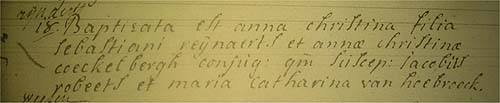 18 Baptisata est anna christina filia
sebastiani reijnairts et annæ christinæ
coeckelbergh conjug: qm suscep: Iacobus
robeets et maria catharina van hoebroeck.